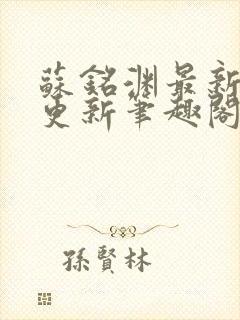 蘇銘淵最新
更新筆趣閣
孫賢林